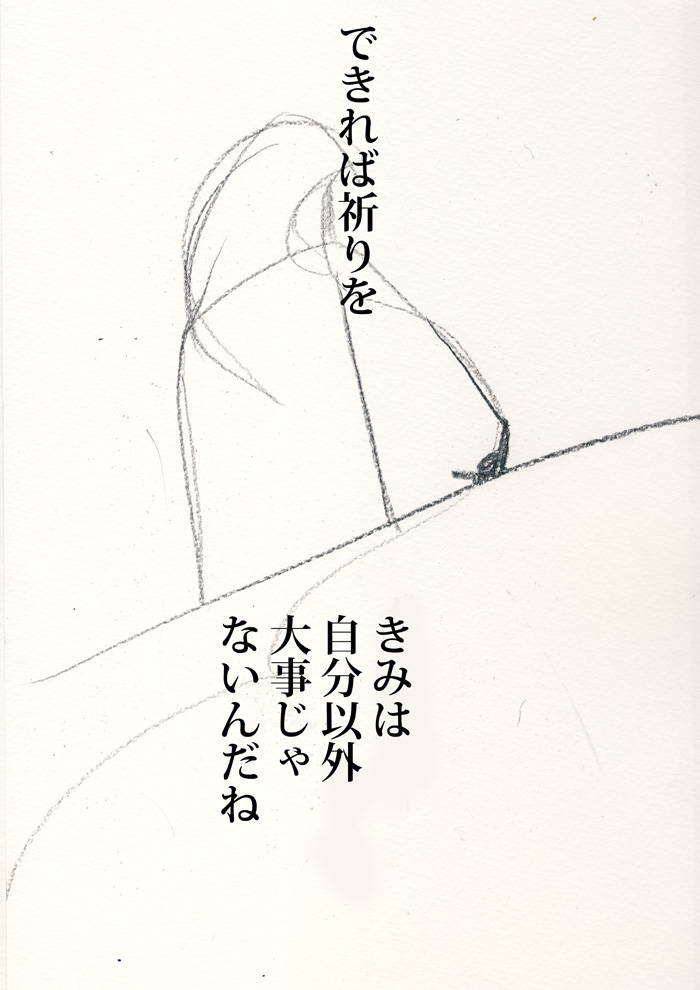 できれば祈りを
きみは
自分以外
大事じゃ
ないんだね